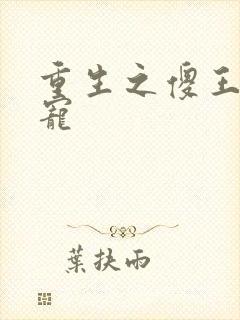 重生之傻王
寵
葉扶雨